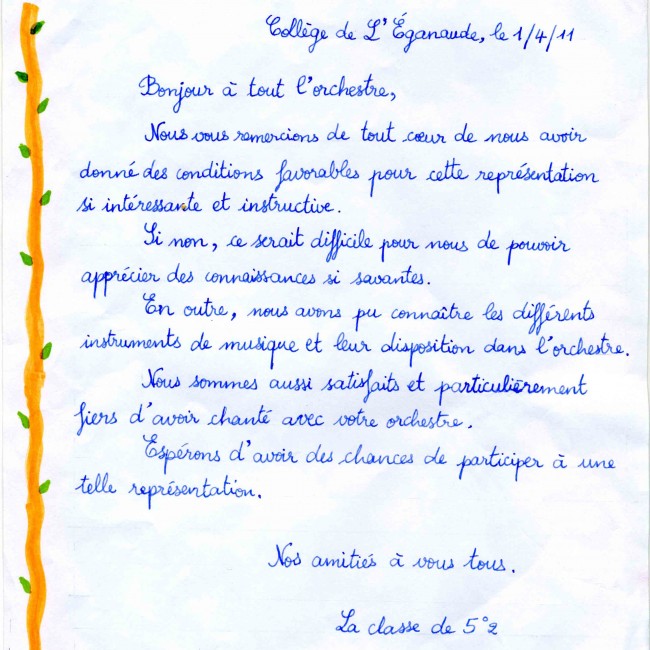 Collège de L'Éganaude, le 1/4/11
Bonjour à tout l'orchestre,
Nous vous remercions de tout cœur de nous avoir
donné des conditions favorables pour cette représentation
si intéressante et instructive.
Si non, ce serait difficile pour nous de pouvoir
apprécier des connaissances si savantes.
En outre, nous avons pu connaître les différents
instruments de musique et leur disposition dans l'orchestre.
Nous sommes aussi satisfaits et particulièrement
fiers d'avoir chanté avec votre orchestre.
Espérons d'avoir des chances de participer à une
telle représentation.
Nos amitiés à vous tous.
La classe de 5°2